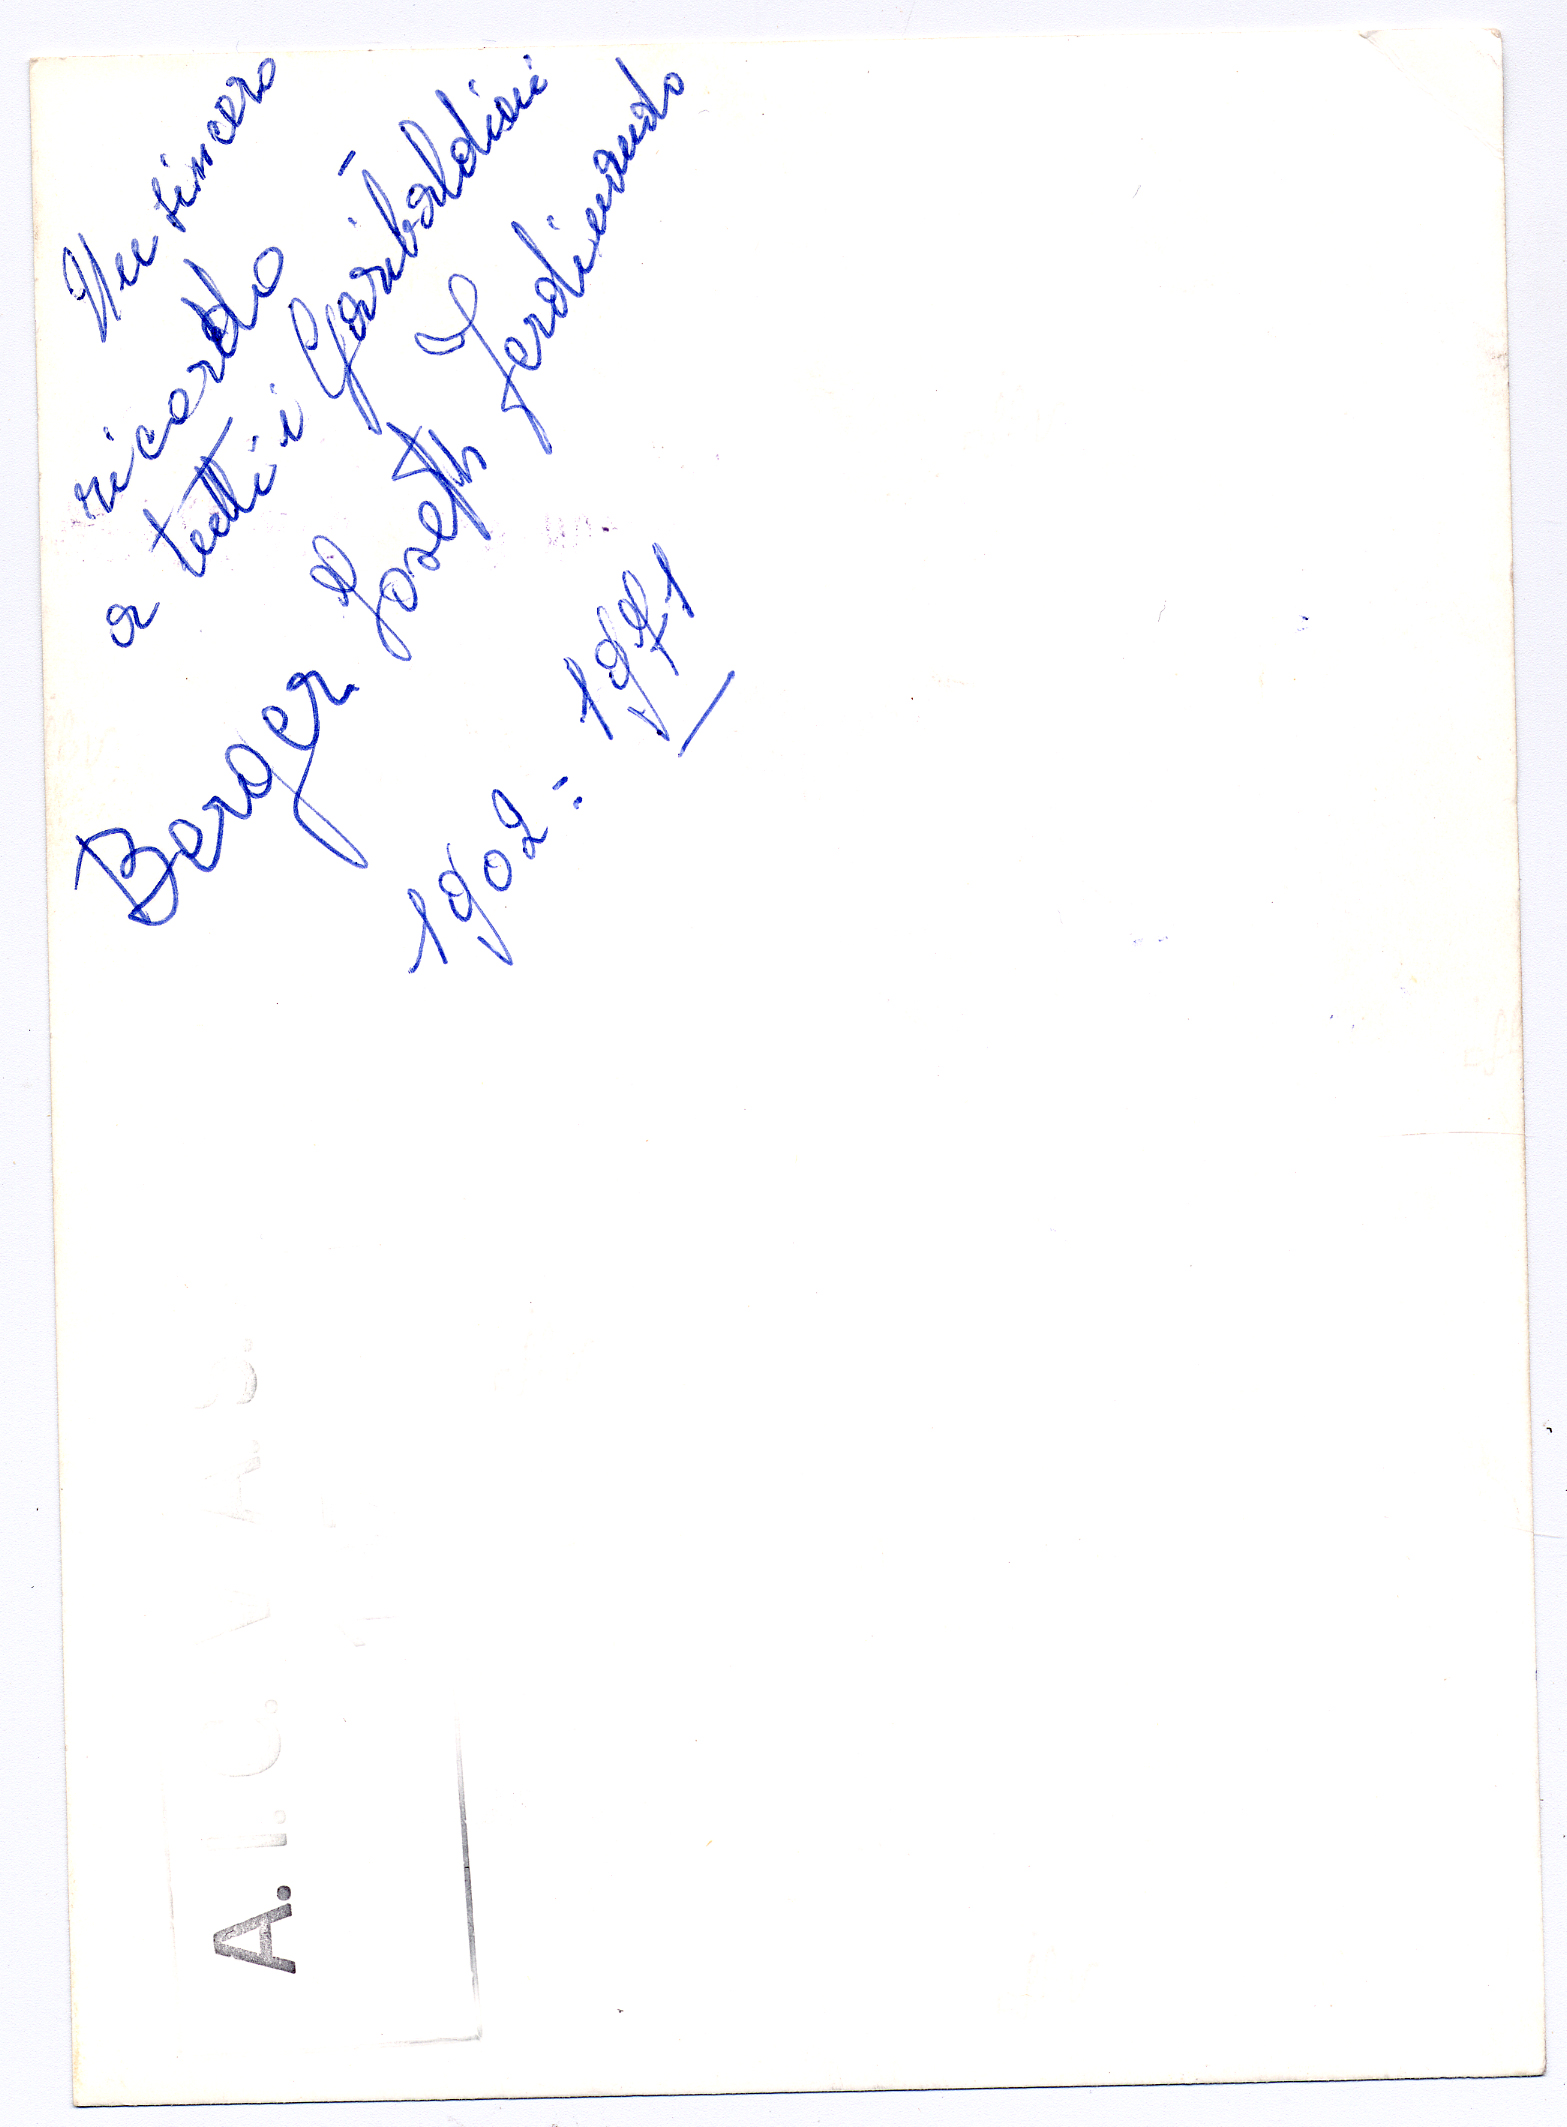 Un sincero
ricordo
a tutti i Garibaldini -
Berger Joseph Ferdinando
1902 = 1971
A. I. C. V. A. S.